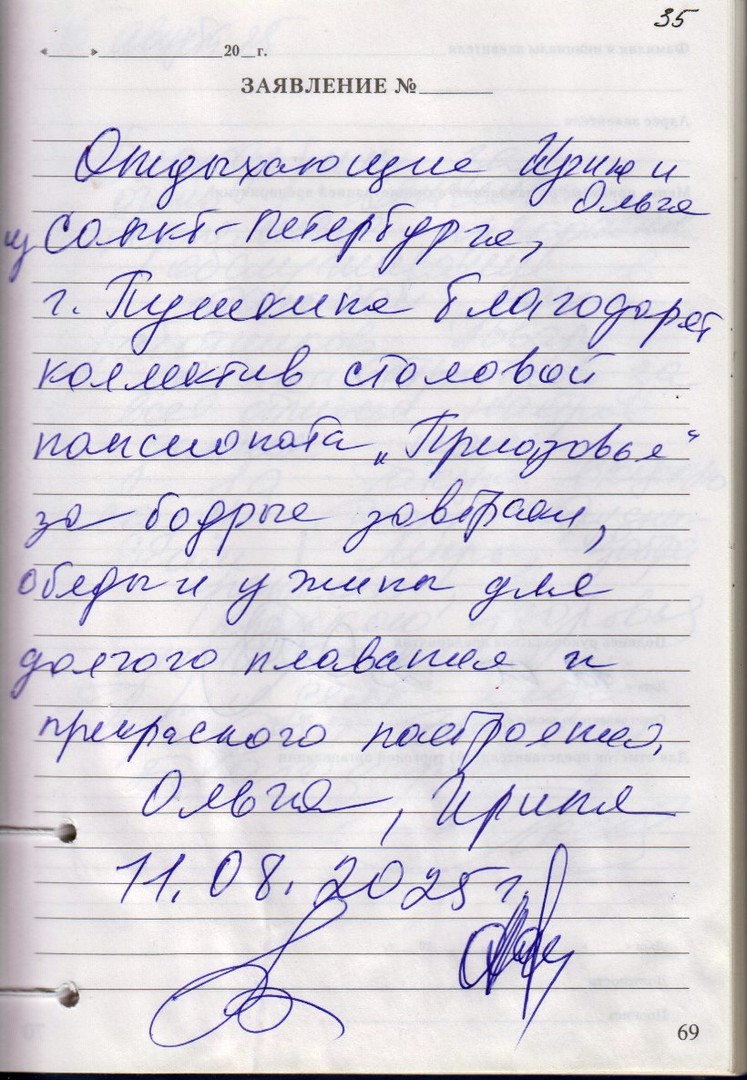 35
«____»______________20__г.
ЗАЯВЛЕНИЕ №_______
Отдыхающие Ирина и
Ольга
из Санкт-Петербурга,
г. Пушкина благодарят
коллектив столовой
пансионата „Приазовье“
за бодрые завтраки,
обеды и ужины для
долгого плавания и
прекрасного настроения.
Ольга, Ирина
11.08.2025 г.
69